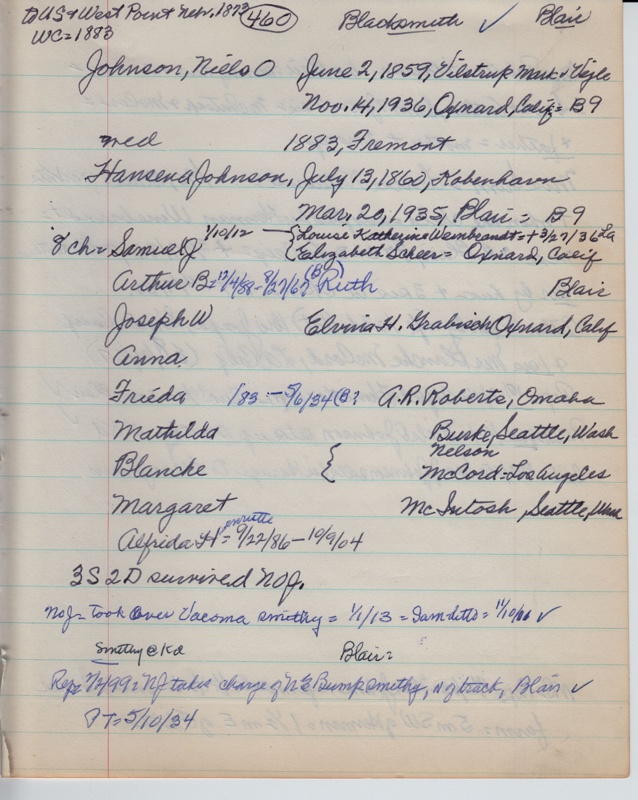 to US & West Point Nebr. 1873 (460) Blacksmith ✓ Blair
WC=1883
Johnson, Niels O June 2, 1859, Vilstrup Mark = Vejle
Nov. 14, 1936, Oxnard, Calif = B9
wed 1883, Fremont
Hansena Johnson, July 13, 1860, Kobenhavn
Mar. 20, 1935, Blair = B9
8 ch = Samuel J 1/10/12 — { Louise Katherine = + 3/27/36 La
Elizabeth Scheer = Oxnard, Calif
Arthur B = 12/4/88 - 8/27/67 (B) Ruth Blair
Joseph W Elvina H. Grabisch Oxnard, Calif
Anna
Frieda 183 - 5/6/34 (B? A.R. Roberts, Omaha
Mathilda Burke, Seattle, Wash
Nelson
Blanche { McCord = Los Angeles
Margaret McIntosh Seattle, Wash
enriette
Alfrida H = 9/22/86 - 10/9/04
3 S 2 D survived NOJ.
NOJ = took over Vacoma smithy = 1/1/13 = Sam ditto = 11/10/06 ✓
Smithy @ Kd Blair =
Rep = 7/2/99 = NJ takes charge of N E Bump smithy, n of track, Blair ✓
PT = 5/10/34